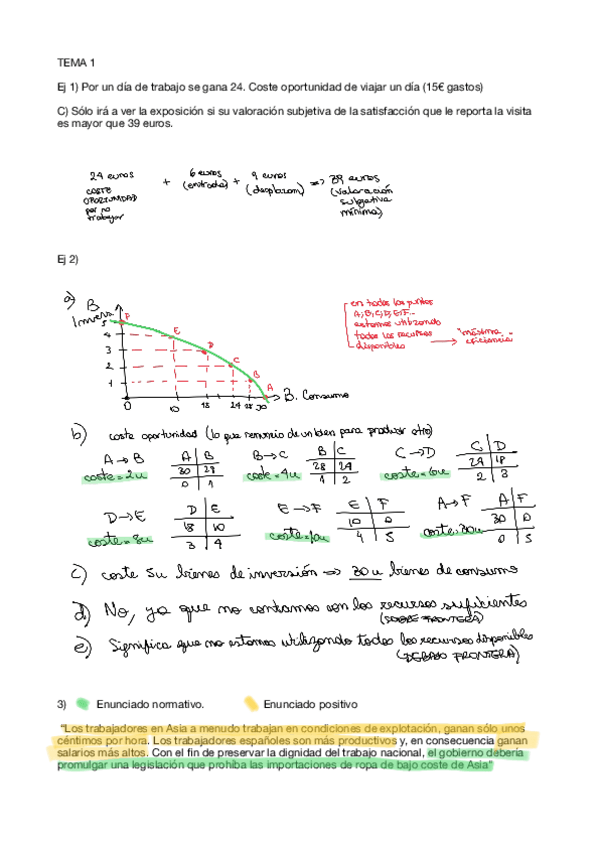 TEMA 1
Ej 1) Por un día de trabajo se gana 24. Coste oportunidad de viajar un día (15€ gastos)
C) Sólo irá a ver la exposición si su valoración subjetiva de la satisfacción que le reporta la visita
es mayor que 39 euros.
24 euros + 6 euros + 9 euros => 39 euros
COSTE OPORTUNIDAD por no trabajar
(entrada)
(desplazam)
(valoración subjetiva mínima)
Ej 2)
a)
B Invers
5
4
3
2
1
0
10
18
24 28 30
B. Consumo
F
E
D
C
B
A
en todos los puntos
A, B, C, D, E, F...
estamos utilizando
todos los recursos
disponibles → "máxima eficiencia"
b) coste oportunidad (lo que renuncio de un bien para producir otro)
A → B
coste = 2u
A B
30 28
0 1
B → C
coste = 4u
B C
28 24
1 2
C → D
coste = 6u
C D
24 18
2 3
D → E
coste = 8u
D E
18 10
3 4
E → F
coste = 10u
E F
10 0
4 5
A → F
coste = 30u
A F
30 0
0 5
c) coste 5u bienes de inversión => 30 u bienes de consumo
d) No, ya que no contamos con los recursos suficientes
(SOBRE FRONTERA)
e) Significa que no estamos utilizando todos los recursos disponibles
(DEBAJO FRONTERA)
3) Enunciado normativo. Enunciado positivo
"Los trabajadores en Asia a menudo trabajan en condiciones de explotación, ganan sólo unos
céntimos por hora. Los trabajadores españoles son más productivos y, en consecuencia ganan
salarios más altos. Con el fin de preservar la dignidad del trabajo nacional, el gobierno debería
promulgar una legislación que prohíba las importaciones de ropa de bajo coste de Asia"